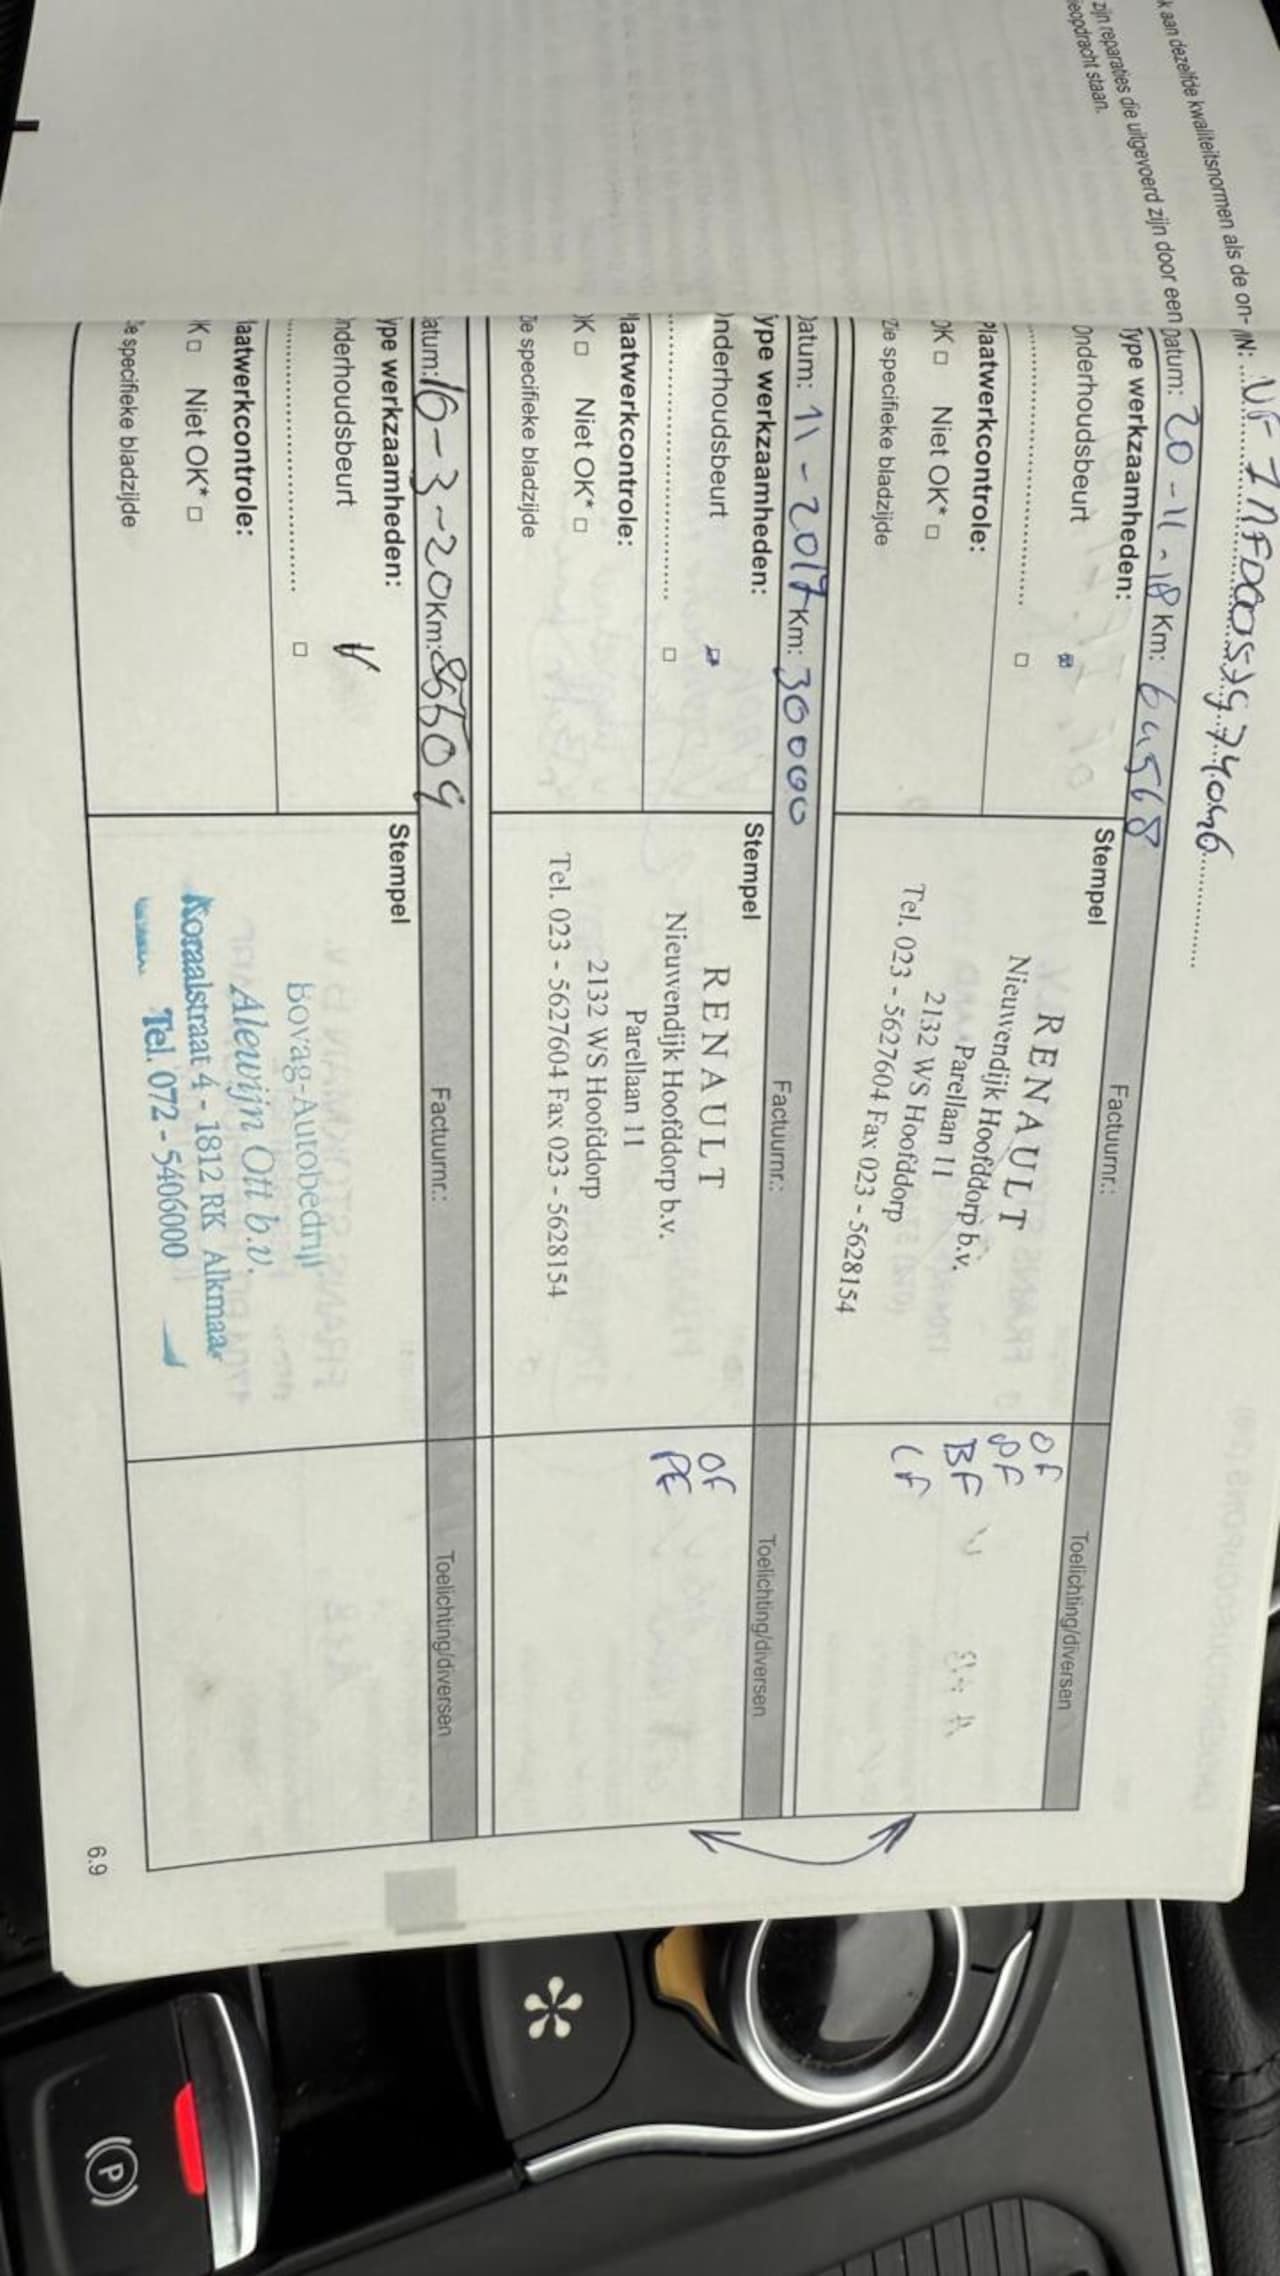 k aan dezelfde kwaliteitsnormen als de on-
zijn reparaties die uitgevoerd zijn door een
ieopdracht staan.
Datum: 20-11-18 Km: 64568
Factuurnr.:
Toelichting/diversen
Type werkzaamheden:
Stempel
Onderhoudsbeurt
RENAULT
Nieuwendijk Hoofddorp b.v.
Parellaan 11
2132 WS Hoofddorp
Tel. 023 - 5627604 Fax 023 - 5628154
OF
BF
CF
Plaatwerkcontrole:
OK □ Niet OK* □
Zie specifieke bladzijde
Datum: 11-2017 Km: 30000
Factuurnr.:
Toelichting/diversen
Type werkzaamheden:
Stempel
Onderhoudsbeurt
RENAULT
Nieuwendijk Hoofddorp b.v.
Parellaan 11
2132 WS Hoofddorp
Tel. 023 - 5627604 Fax 023 - 5628154
OF
PF
Plaatwerkcontrole:
OK □ Niet OK* □
Zie specifieke bladzijde
atum: 16-3-20 Km:
Factuurnr.:
Toelichting/diversen
ype werkzaamheden:
Stempel
nderhoudsbeurt V
Bovag-Autobedrijf
Alewijn Ott b.v.
Koraalstraat 4 - 1812 RK Alkmaar
Tel. 072 - 5406000
laatwerkcontrole:
K □ Niet OK* □
ie specifieke bladzijde
6.9
(P)